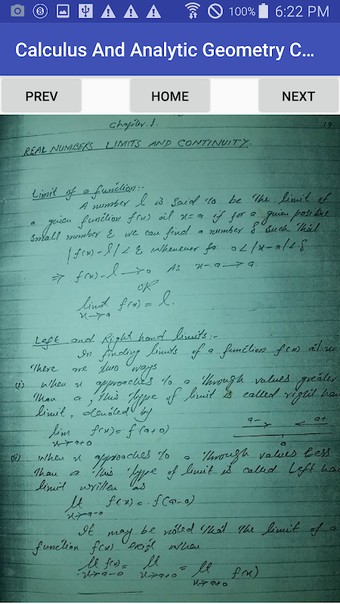 100% 6:22 PM
Calculus And Analytic Geometry C...
PREV HOME NEXT
Chapter.1.
REAL NUMBERS LIMITS AND CONTINUITY.
Limit of a function:-
A number l is said to be the limit of
a given function f(x) at x=a if for a given positive
small number ε we can find a number δ such that
|f(x)-l|<ε whenever for 0<|x-a|<δ
⇒ f(x)-l→0 As x-a→
OR
limit f(x)=l.
x→a
Left and Right hand limits:-
In finding limits of a function f(x) at x
There are two ways
(i) when x approaches to a through values greater
Than a, this type of limit is called right ha
limit, denoted by
lim f(x)=f(a+0)
x→a+0
a- a+
a
(ii) when x approaches to a through values less
Than a this type of limit is called Left ha
limit written as
lt f(x)=f(a-0)
x→a-0
It may be noted that the limit of a
function f(x) exist when
lt f(x)= lt = lt f(x)
x→a-0 x→a+0 x→a